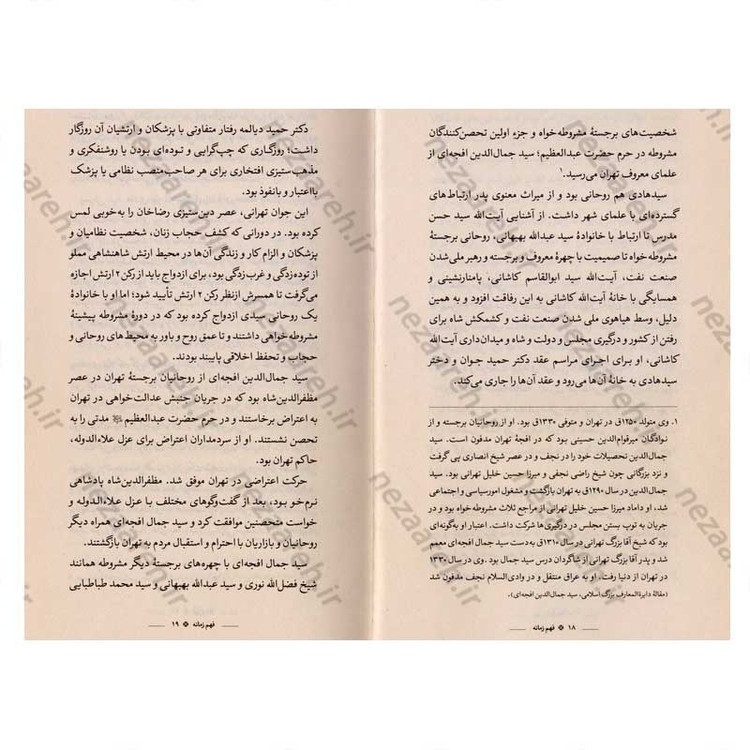 شخصیت‌های برجستهٔ مشروطه‌خواه و جزء اولین تحصن‌کنندگان
مشروطه در حرم حضرت عبدالعظیم؛ سید جمال‌الدین افجه‌ای از
علمای معروف تهران می‌رسید.۱
سیدهادی هم روحانی بود و از میراث معنوی پدر ارتباط‌های
گسترده‌ای با علمای شهر داشت. از آشنایی آیت‌الله سید حسن
مدرس تا ارتباط با خانوادهٔ سید عبدالله بهبهانی، روحانی برجستهٔ
مشروطه‌خواه تا صمیمیت با چهرهٔ معروف و برجسته و رهبر ملی شدن
صنعت نفت، آیت‌الله سید ابوالقاسم کاشانی، پامنارنشینی و
همسایگی با خانهٔ آیت‌الله کاشانی به این رفاقت افزود و به همین
دلیل، وسط هیاهوی ملی شدن صنعت نفت و کشمکش شاه برای
رفتن از کشور و درگیری مجلس و دولت و شاه و میدان‌داری آیت‌الله
کاشانی، او برای اجرای مراسم عقد دکتر حمید جوان و دختر
سیدهادی به خانهٔ آن‌ها می‌رود و عقد آن‌ها را جاری می‌کند.
۱. وی متولد ۱۲۵۰ق در تهران و متوفی ۱۳۳۰ق بود. او از روحانیان برجسته و از
نوادگان میرقوام‌الدین حسینی بود که در افجهٔ تهران مدفون است. سید
جمال‌الدین تحصیلات خود را در نجف و در عصر شیخ انصاری پی گرفت
و نزد بزرگانی چون شیخ راضی نجفی و میرزا حسین خلیل تهرانی بود. سید
جمال‌الدین در سال ۱۲۹۰ق به تهران بازگشت و مشغول امورسیاسی و اجتماعی
شد. او داماد میرزا حسین خلیل تهرانی از مراجع ثلاث مشروطه خواه بود و در
جریان به توپ بستن مجلس در درگیری‌ها شرکت داشت. اعتبار او به‌گونه‌ای
بود که شیخ آقا بزرگ تهرانی در سال ۱۳۱۰ق به‌دست سید جمال افجه‌ای معمم
شد و پدر آقا بزرگ تهرانی از شاگردان درس سید جمال بود. وی در سال ۱۳۳۰
در تهران از دنیا رفت. او به عراق منتقل و در وادی‌السلام نجف مدفون شد
(مقالهٔ دایرةالمعارف بزرگ اسلامی، سید جمال‌الدین افجه‌ای).
۱۸ فهم زمانه
دکتر حمید دیالمه رفتار متفاوتی با پزشکان و ارتشیان آن روزگار
داشت؛ روزگاری که چپ‌گرایی و توده‌ای بودن یا روشنفکری و
مذهب‌ستیزی افتخاری برای هر صاحب‌منصب نظامی یا پزشک
بااعتبار و بانفوذ بود.
این جوان تهرانی، عصر دین‌ستیزی رضاخان را به‌خوبی لمس
کرده بود. در دورانی که کشف حجاب زنان، شخصیت نظامیان و
پزشکان و الزام کار و زندگی آن‌ها در محیط ارتش شاهنشاهی مملو
از توده‌زدگی و غرب‌زدگی بود، برای ازدواج باید از رکن ۲ ارتش اجازه
می‌گرفت تا همسرش ازنظر رکن ۲ ارتش تأیید شود؛ اما او با خانوادهٔ
یک روحانی سیدی ازدواج کرده بود که در دورهٔ مشروطه پیشینهٔ
مشروطه‌خواهی داشتند و تا عمق روح و باور به محیط‌های روحانی و
حجاب و تحفظ اخلاقی پایبند بودند.
سید جمال‌الدین افجه‌ای از روحانیان برجستهٔ تهران در عصر
مظفرالدین‌شاه بود که در جریان جنبش عدالت‌خواهی در تهران
به اعتراض برخاستند و در حرم حضرت عبدالعظیم مدتی را به
تحصن نشستند. او از سردمداران اعتراض برای عزل علاءالدوله،
حاکم تهران بود.
حرکت اعتراضی در تهران موفق شد. مظفرالدین‌شاه پادشاهی
نرم‌خو بود، بعد از گفت‌وگوهای مختلف با عزل علاءالدوله و
خواست متحصنین موافقت کرد و سید جمال افجه‌ای همراه دیگر
روحانیان و بازاریان با احترام و استقبال مردم به تهران بازگشتند.
سید جمال افجه‌ای با چهره‌های برجستهٔ دیگر مشروطه همانند
شیخ فضل‌الله نوری و سید عبدالله بهبهانی و سید محمد طباطبایی
۱۹ فهم زمانه
nezaareh.ir